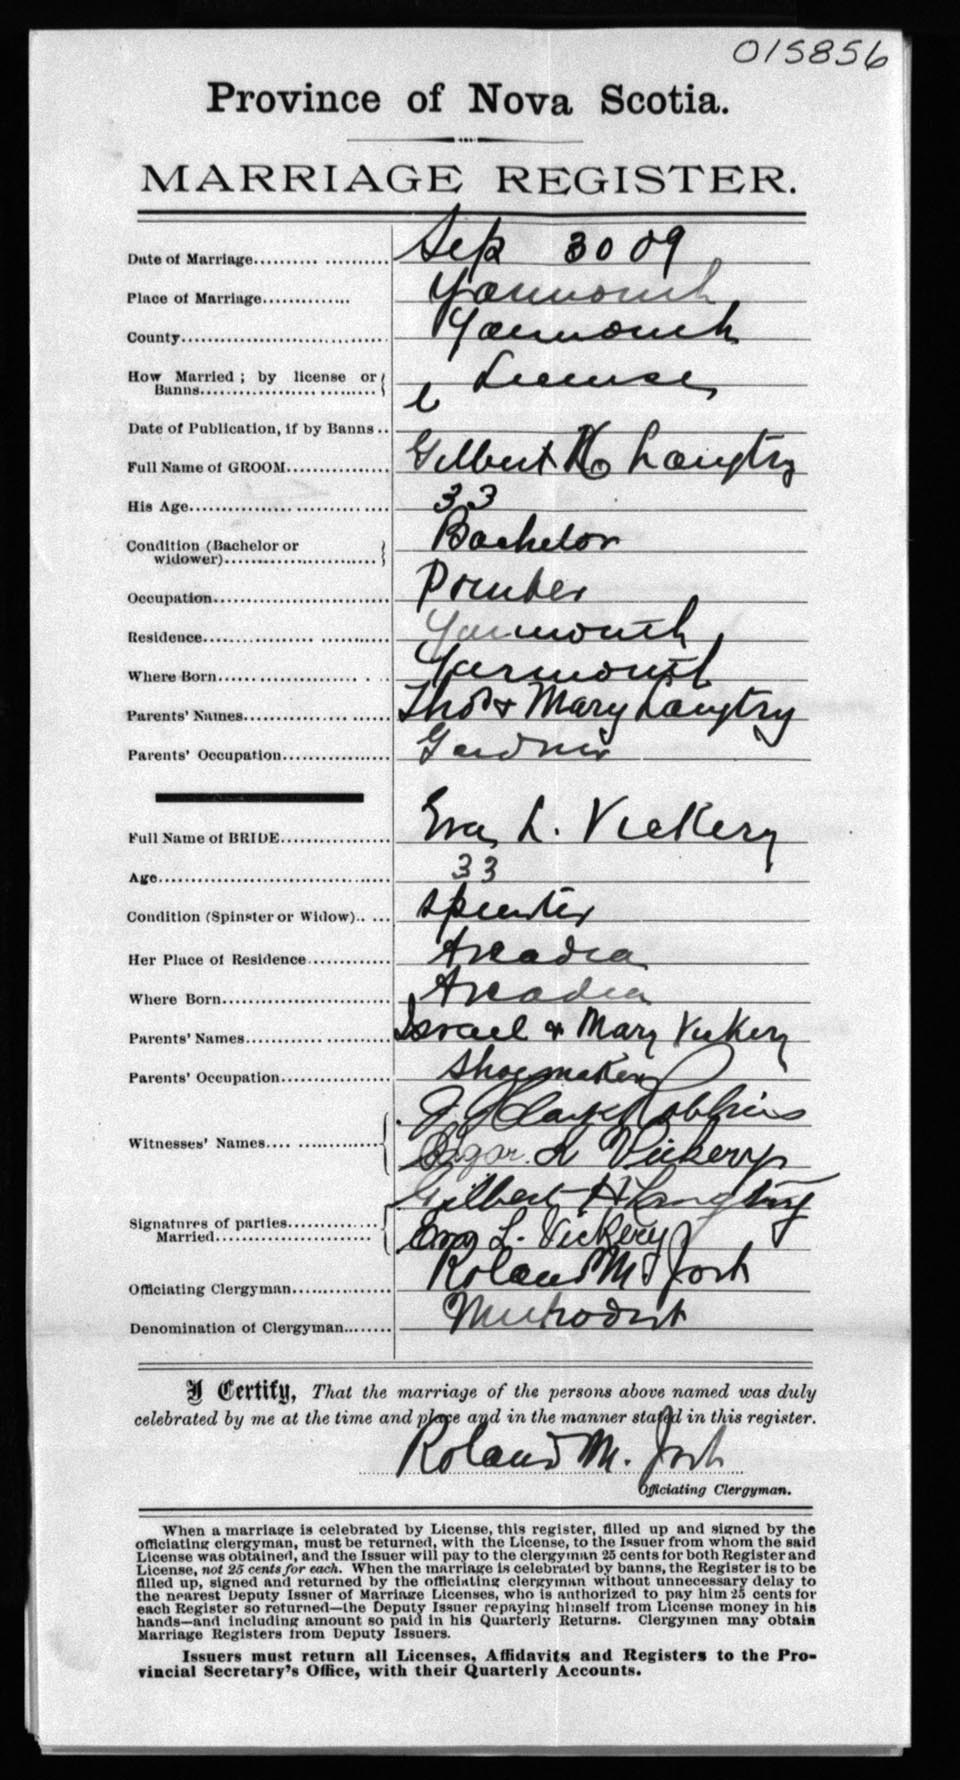 015856
Province of Nova Scotia.
MARRIAGE REGISTER.
Date of Marriage Sep 30 09
Place of Marriage Yarmouth
County Yarmouth
How Married ; by license or Banns License
Date of Publication, if by Banns
Full Name of GROOM Gilbert H Langtry
His Age 33
Condition (Bachelor or widower) Bachelor
Occupation
Residence Yarmouth
Where Born Yarmouth
Parents' Names Thos & Mary Langtry
Parents' Occupation Gardner
Full Name of BRIDE Eva L. Vickery
Age 33
Condition (Spinster or Widow) Spinster
Her Place of Residence Arcadia
Where Born Arcadia
Parents' Names Israel & Mary Vickery
Parents' Occupation Shoemaker
Witnesses' Names J. Clark Robbins
Edgar L Vickery
Signatures of parties Married Gilbert H Langtry
Eva L. Vickery
Officiating Clergyman Roland M
Denomination of Clergyman Methodist
I Certify, That the marriage of the persons above named was duly
celebrated by me at the time and place and in the manner stated in this register.
Roland M.
Officiating Clergyman.
When a marriage is celebrated by License, this register, filled up and signed by the
officiating clergyman, must be returned, with the License, to the Issuer from whom the said
License was obtained, and the Issuer will pay to the clergyman 25 cents for both Register and
License, not 25 cents for each. When the marriage is celebrated by banns, the Register is to be
filled up, signed and returned by the officiating clergyman without unnecessary delay to
the nearest Deputy Issuer of Marriage Licenses, who is authorized to pay him 25 cents for
each Register so returned—the Deputy Issuer repaying himself from License money in his
hands—and including amount so paid in his Quarterly Returns. Clergymen may obtain
Marriage Registers from Deputy Issuers.
Issuers must return all Licenses, Affidavits and Registers to the Pro-
vincial Secretary's Office, with their Quarterly Accounts.